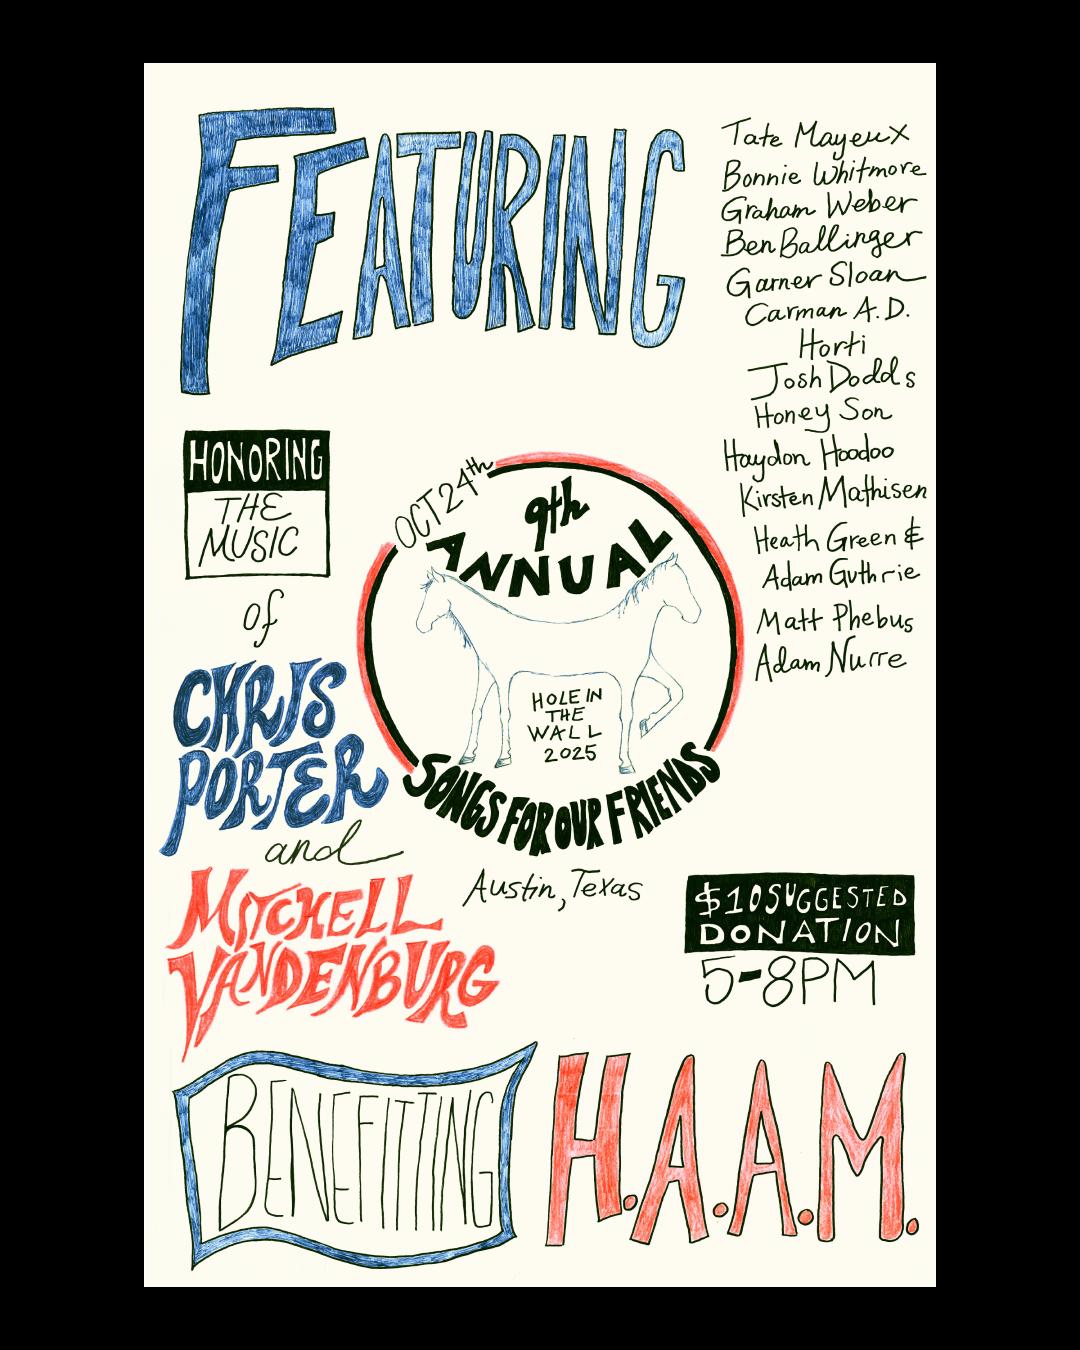 FEATURING
Tate Mayeux
Bonnie Whitmore
Graham Weber
Ben Ballinger
Garner Sloan
Carman A.D.
Horti
Josh Dodds
Honey Son
Haydon Hoodoo
Kirsten Mathisen
Heath Green &
Adam Guthrie
Matt Phebus
Adam Nurre
HONORING
THE
MUSIC
of
CHRIS
PORTER
and
MITCHELL
VANDENBURG
OCT 24th
9th
ANNUAL
HOLE IN
THE
WALL
2025
SONGS FOR OUR FRIENDS
Austin, Texas
$10 SUGGESTED
DONATION
5-8PM
BENEFITTING
H.A.A.M.